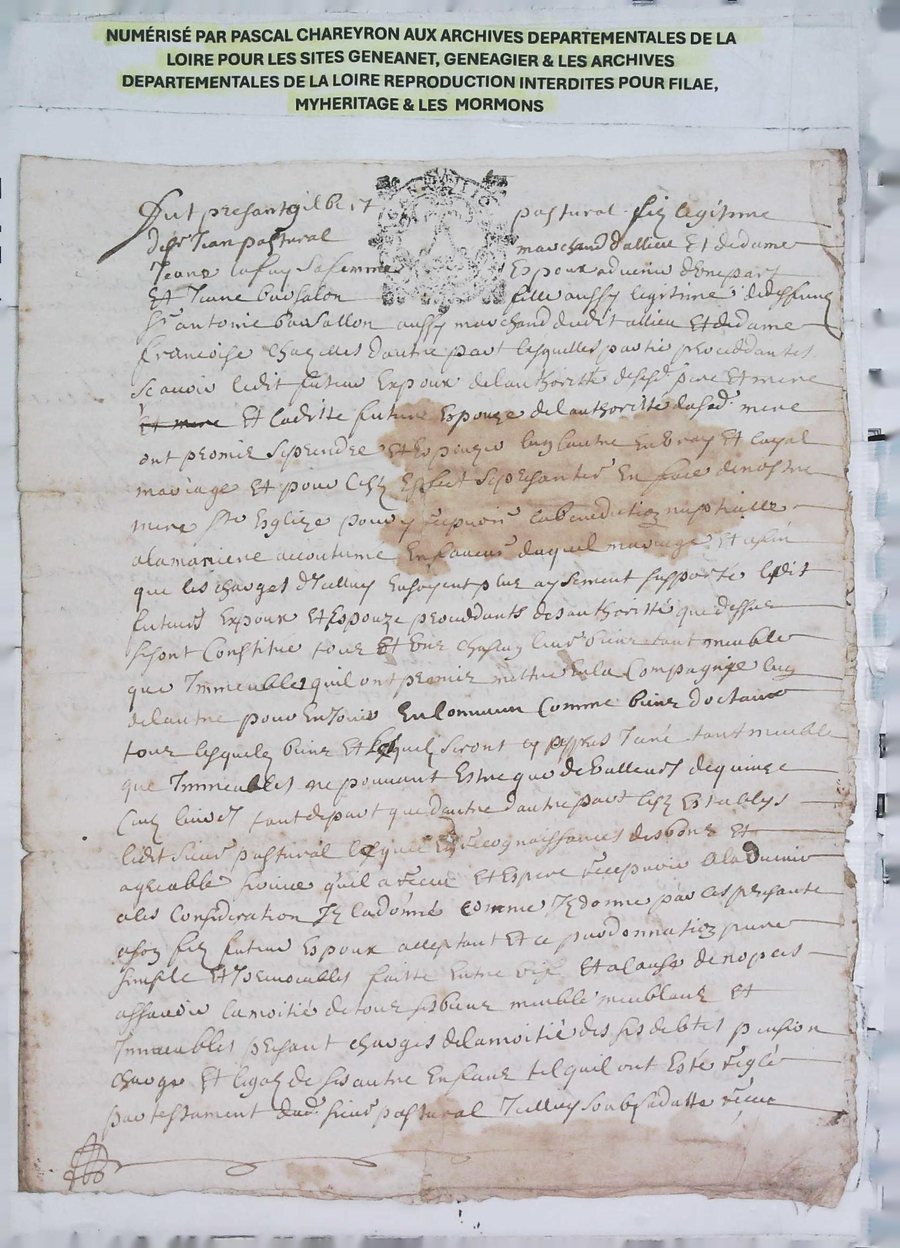 NUMÉRISÉ PAR PASCAL CHAREYRON AUX ARCHIVES DEPARTEMENTALES DE LA
LOIRE POUR LES SITES GENEANET, GENEAGIER & LES ARCHIVES
DEPARTEMENTALES DE LA LOIRE REPRODUCTION INTERDITES POUR FILAE,
MYHERITAGE & LES MORMONS
fut presant gilbert pastural filz legitime
de sr Jean pastural marchand dallieu Et de dame
Jeane sa femme Expoux advenir d'Une part
Et Jeane fille aussy legitime de deffunct
sr antoine aussy marchand dudit allieu Et de dame
francoise chazelles dautre part lesquelles partie proceddantes
scavoir ledit futeur Expoux de lauthoritté de sesd. pere Et mere
et mere Et laditte future Expouze de lauthoritté de sad. mere
ont promis se prendre et Expouzer lung lautre En vray Et loyal
mariage Et pour cest Effect se presanter En face de nostre
mere Ste Eglize pour y recepvoir la benediction nuptialle
a la maniere accoutume En faveur duquel mariage Et afin
que les charges dicelluy En soyent plus aysement supporté ledit
futeurs Expoux Et Espouze proceddants de authoritté que dessus
se sont Constitué tous Et Uns chascun leurs biens tant meuble
que Immeubles quil ont promis mettre En la Compagnie lung
de lautre pour En Jouir En Commun Comme biens doctaux
tous lesquelz biens Et seront cy appres tant meuble
que Immeubles ne pouvant Estre que de valleurs de quinze
Cent livres tant de part que dautre dautre part Establys
ledit sieur pastural lequel En recognaissances des bons Et
agreable service quil a receu Et Espere recepvoir a ladvenir
a ces Consideration a donné comme Il donne par ces presante
a son filz futeur Expoux acceptant Et ce par donnation pure
simple Et Irrevocables faitte Entre vifz Et a cause de nopces
assavoir la moitié de tous ses biens meuble meublans Et
Immeubles pesant charges de la moitié des ses debtes pension
charge Et legatz de ses autre Enfans tel quil ont Esté reglé
par testament dud. sieur pastural Icelluy soubs sa datte receu